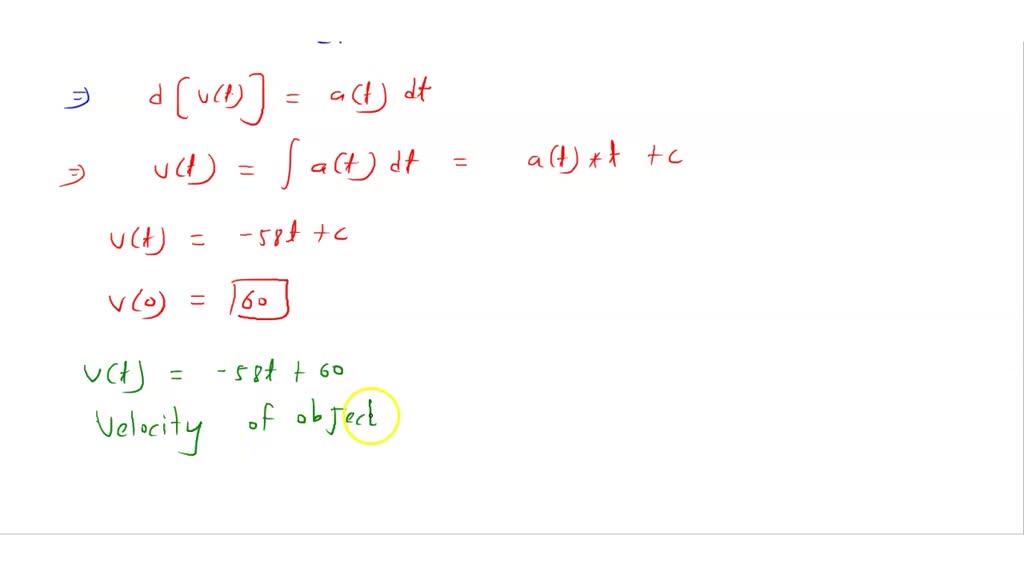 ⇒ d[v(t)] = a(t) dt
⇒ v(t) = ∫ a(t) dt = a(t) * t + c
v(t) = -58t + c
v(0) = 60
v(t) = -58t + 60
Velocity of object